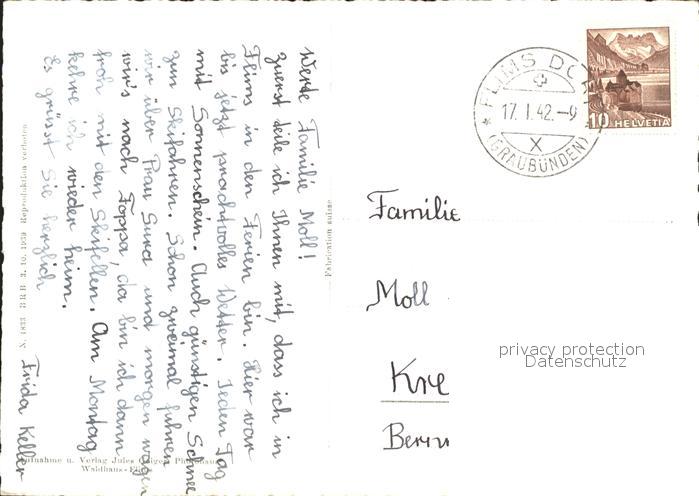 Werte Familie Moll!
zuerst teile ich Ihnen mit, dass ich in
Flims in den Ferien bin. Hier war
bis jetzt prachtvolles Wetter. Jeden Tag
mit Sonnenschein. Auch günstigen Schnee
zum Skifahren. Schon zweimal fuhren
wir über Frau Sura und morgen wagen
wir's nach Foppa, da bin ich dann
froh mit den Skifellen. Am Montag
kehre ich wieder heim.
Es grüsst Sie herzlich
Frida Keller
N. 1833 BRB 3. 10. 1939 Reproduktion verboten
Aufnahme u. Verlag Jules
Waldhaus-Flims
Fabrication suisse
FLIMS
17. I. 42.-9
X
(GRAUBÜNDEN)
10 HELVETIA
Familie
Moll
privacy protection
Datenschutz
Bern